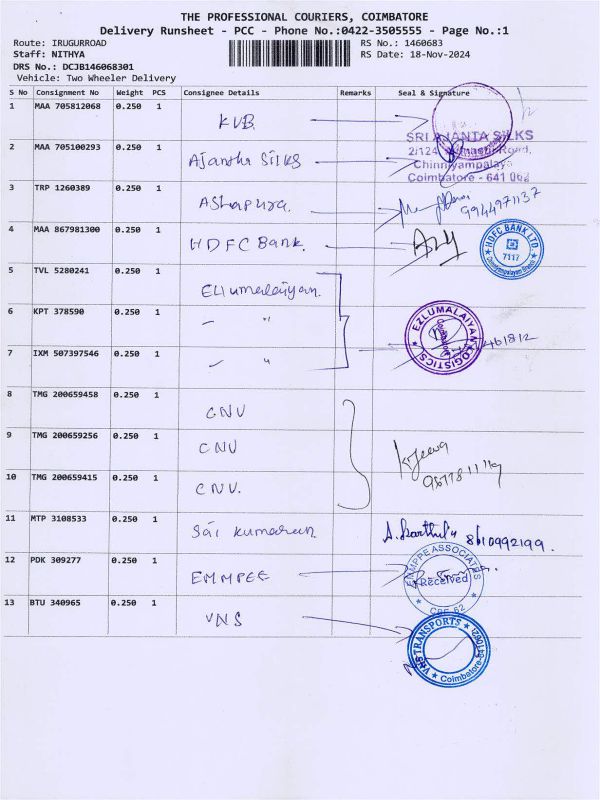 THE PROFESSIONAL COURIERS, COIMBATORE
Delivery Runsheet - PCC - Phone No.:0422-3505555 - Page No.:1
Route: IRUGURROAD
RS No.: 1460683
Staff: NITHYA
RS Date: 18-Nov-2024
DRS No.: DCJB146068301
Vehicle: Two Wheeler Delivery
S No Consignment No Weight PCS Consignee Details Remarks Seal & Signature
1 MAA 705812068 0.250 1 KVB
SRI AJANTA SILKS
2 MAA 705100293 0.250 1 Ajantha Silks
2/124, Road,
Chinniyampalayam
Coimbatore - 641 062
3 TRP 1260389 0.250 1 Ashapura. 9944971137
4 MAA 867981300 0.250 1 HDFC Bank.
HDFC BANK LTD.
7117
Chinniyampalayam Branch
5 TVL 5280241 0.250 1 Ezlumalaiyan.
6 KPT 378590 0.250 1 — "
EZLUMALAIYAN LOGISTICS
Coimbatore
7 IXM 507397546 0.250 1 — "
8 TMG 200659458 0.250 1 GNU
9 TMG 200659256 0.250 1 CNU
10 TMG 200659415 0.250 1 CNU.
11 MTP 3108533 0.250 1 Sai Kumaran A. Karthik 8610992199.
12 PDK 309277 0.250 1 EMMPEE
EMMPPE ASSOCIATES
Received
CBE-62
13 BTU 340965 0.250 1 VNS
VNS TRANSPORTS
Coimbatore-641062